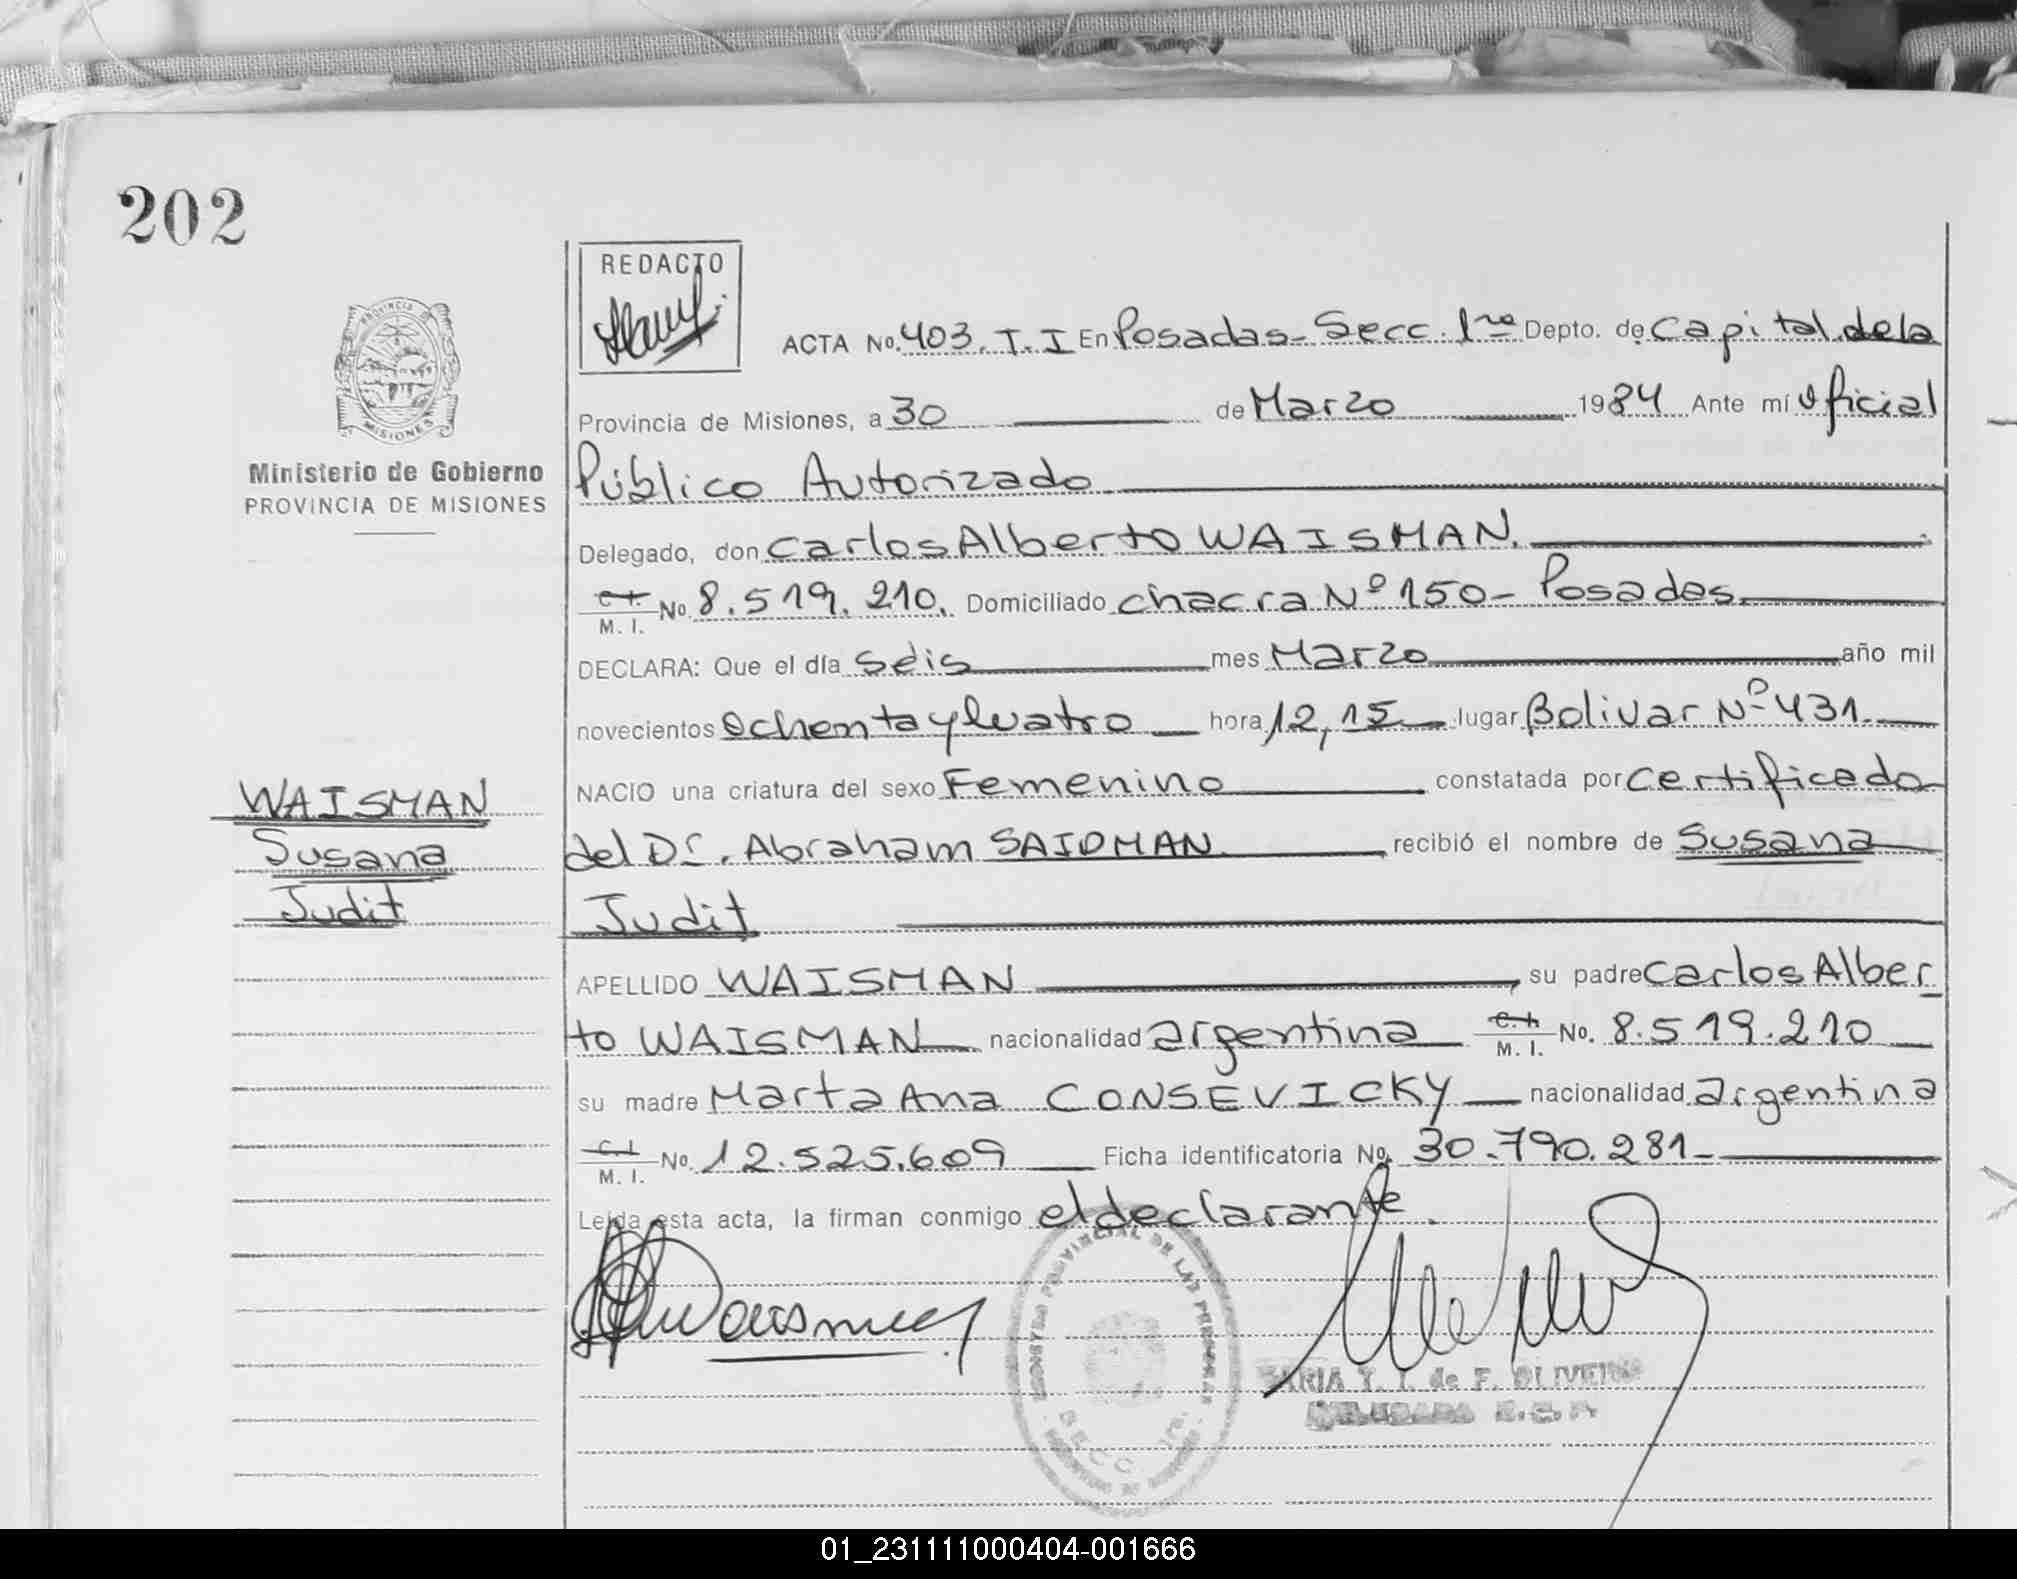 202
REDACTO
PROVINCIA DE
MISIONES
Ministerio de Gobierno
PROVINCIA DE MISIONES
ACTA No. 403. T. I En Posadas - Secc. 1ra Depto. de Capital de la
Provincia de Misiones, a 30 de Marzo 1984 Ante mí Oficial
Público Autorizado
Delegado, don Carlos Alberto WAISMAN.
C. I. / M. I. No. 8.519.210. Domiciliado Chacra Nº 150 - Posadas.
DECLARA: Que el día Seis mes Marzo año mil
novecientos Ochenta y Cuatro hora 12,15 lugar Bolivar Nº 431.
NACIO una criatura del sexo Femenino constatada por Certificado
del Dr. Abraham SAIDMAN recibió el nombre de Susana
Judit
WAISMAN
Susana
Judit
APELLIDO WAISMAN, su padre Carlos Alber
to WAISMAN nacionalidad argentina C. I. / M. I. No. 8.519.210
su madre Marta Ana CONSEVICKY nacionalidad argentina
C. I. / M. I. No. 12.525.609 Ficha identificatoria No. 30.790.281 -
Leída esta acta, la firman conmigo el declarante.
PROVINCIAL DE LAS PERSONAS
SECC.
MARIA T. T. de F. OLIVEIRA
01_231111000404-001666